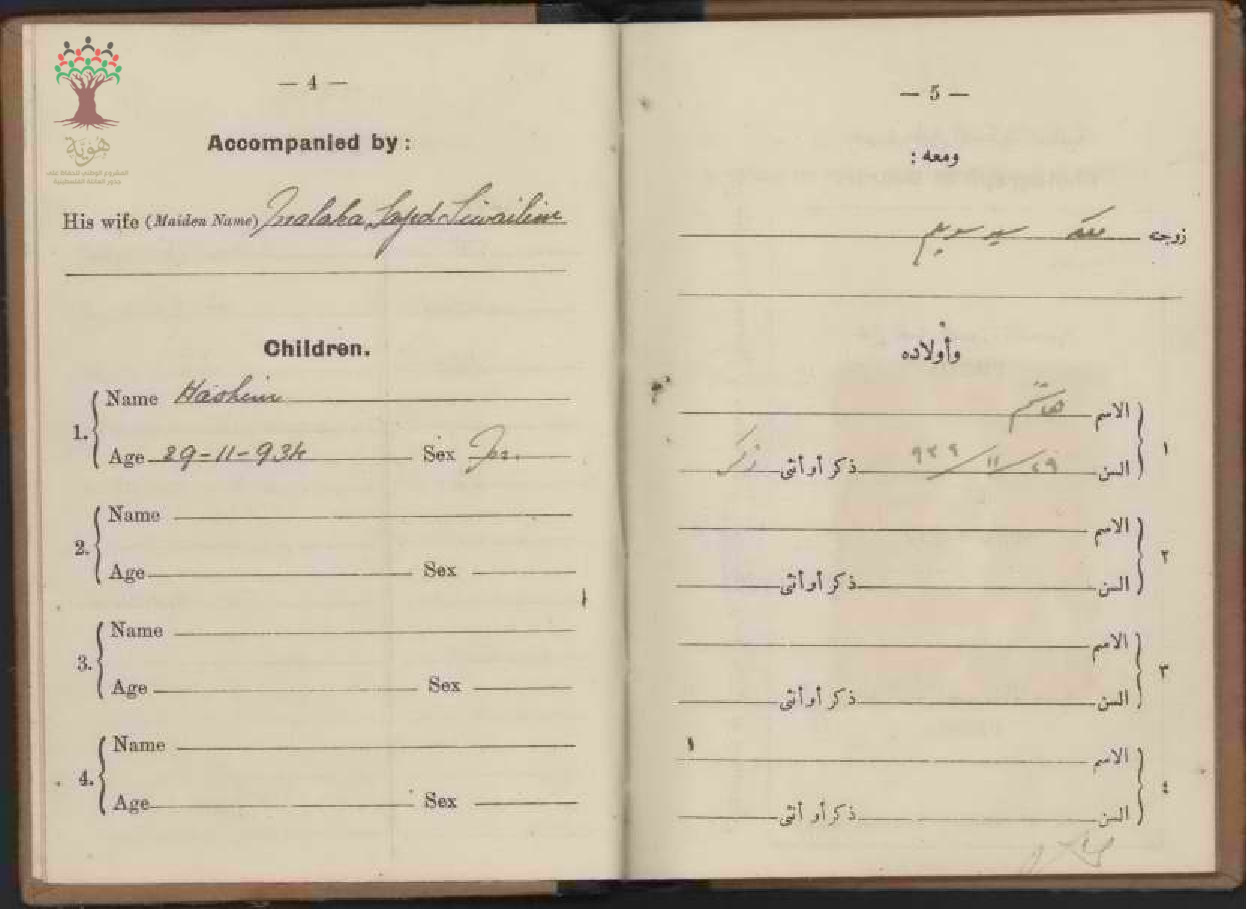 هوية
المشروع الوطني للحفاظ على
جذور العائلة الفلسطينية
— 4 —
Accompanied by :
His wife (Maiden Name) Malaka Sayed
Children.
1. Name Hashim
Age 29-11-934 Sex
2. Name
Age Sex
3. Name
Age Sex
4. Name
Age Sex
— 5 —
ومعه :
زوجته ملكه سيد سويلم
وأولاده
١ الاسم هاشم
السن ٢٩/١١/ ذكر أو أنثى ذكر
٢ الاسم
السن ذكر أو أنثى
٣ الاسم
السن ذكر أو أنثى
٤ الاسم
السن ذكر أو أنثى